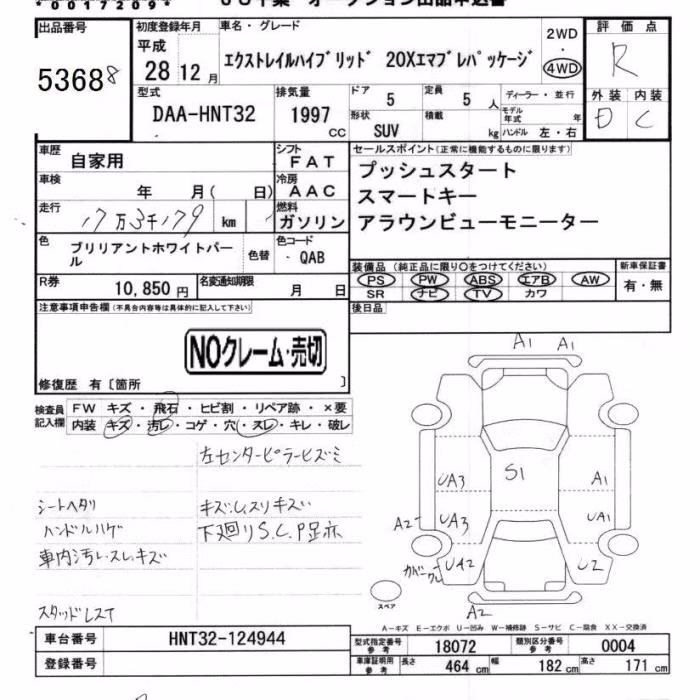 *0017209*
出品番号
53688
初度登録年月
平成
28 12 月
車名・グレード
エクストレイルハイブリッド 20Xエマブレパッケージ
2WD
・
4WD
評価点
R
型式
DAA-HNT32
排気量
1997
CC
ドア
5
定員
5 人
形状
SUV
積載
kg
ディーラー・並行
モデル年式 年
ハンドル 左・右
外装 内装
D C
車歴
自家用
シフト
FAT
車検
年 月( 日)
冷房
AAC
走行
17万3千179 km
燃料
ガソリン
色
ブリリアントホワイトパール
色替
色コード
QAB
R券
10,850 円
名変通知期限
月 日
セールスポイント(正常に機能するものに限ります)
プッシュスタート
スマートキー
アラウンビューモニーター
装備品 (純正品に限り○をつけてください)
PS PW ABS エアB AW
SR ナビ TV カワ
新車保証書
有・無
後日品
注意事項申告欄(不具合内容等は具体的に記入して下さい)
NOクレーム・売切
修復歴 有〔箇所 〕
検査員記入欄
FW キズ・飛石・ヒビ割・リペア跡・×要
内装 キズ・汚し・コゲ・穴・スレ・キレ・破レ
左センターピラーヒズミ
シートヘタリ
ハンドルハゲ
下廻りS.C.P足赤
車内汚レ・スレ・キズ
スタッドレスT
A1 A1
S1
UA3 A1
A2 UA3 UA1
カバーワレ UA2 U2
A2
スペア
A-キズ E-エクボ U-凹み W-補修跡 S-サビ C-腐食 XX-交換済
車台番号
HNT32-124944
登録番号
型式指定番号 参考
18072
類別区分番号 参考
0004
車庫証明用 参考
長さ 464 cm
幅 182 cm
高さ 171 cm